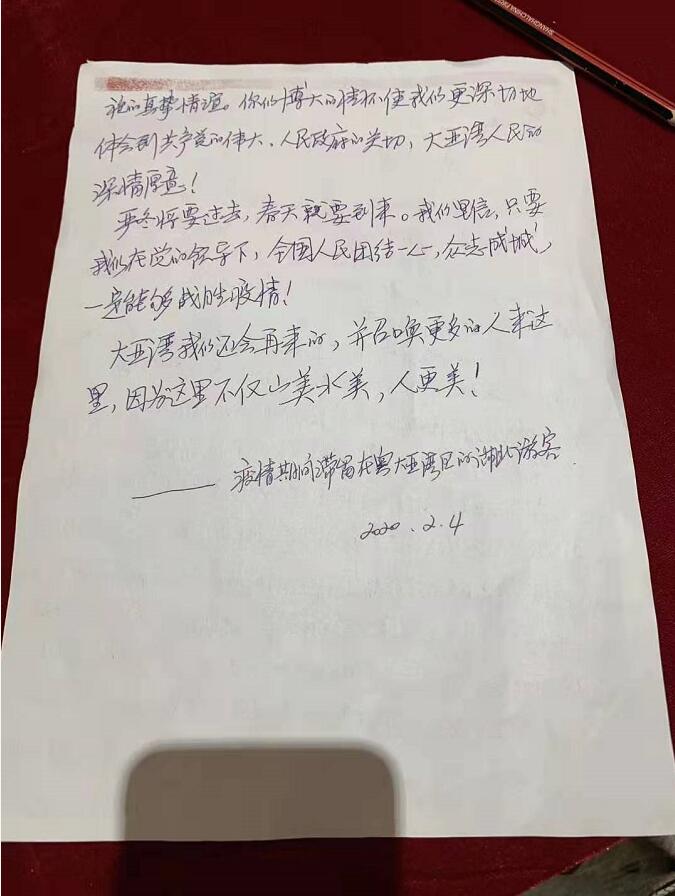 的真挚情谊。你们博大的情怀使我们更深切地
体会到共产党的伟大、人民政府的关切，大亚湾人民的
深情厚意！
严冬将要过去，春天就要到来。我们坚信，只要
我们在党的领导下，全国人民团结一心，众志成城，
一定能够战胜疫情！
大亚湾我们还会再来的，并召唤更多的人来这
里，因为这里不仅山美水美，人更美！
——疫情期间滞留在粤大亚湾区的湖北游客
2020.2.4
SHANGHAI, CHINA